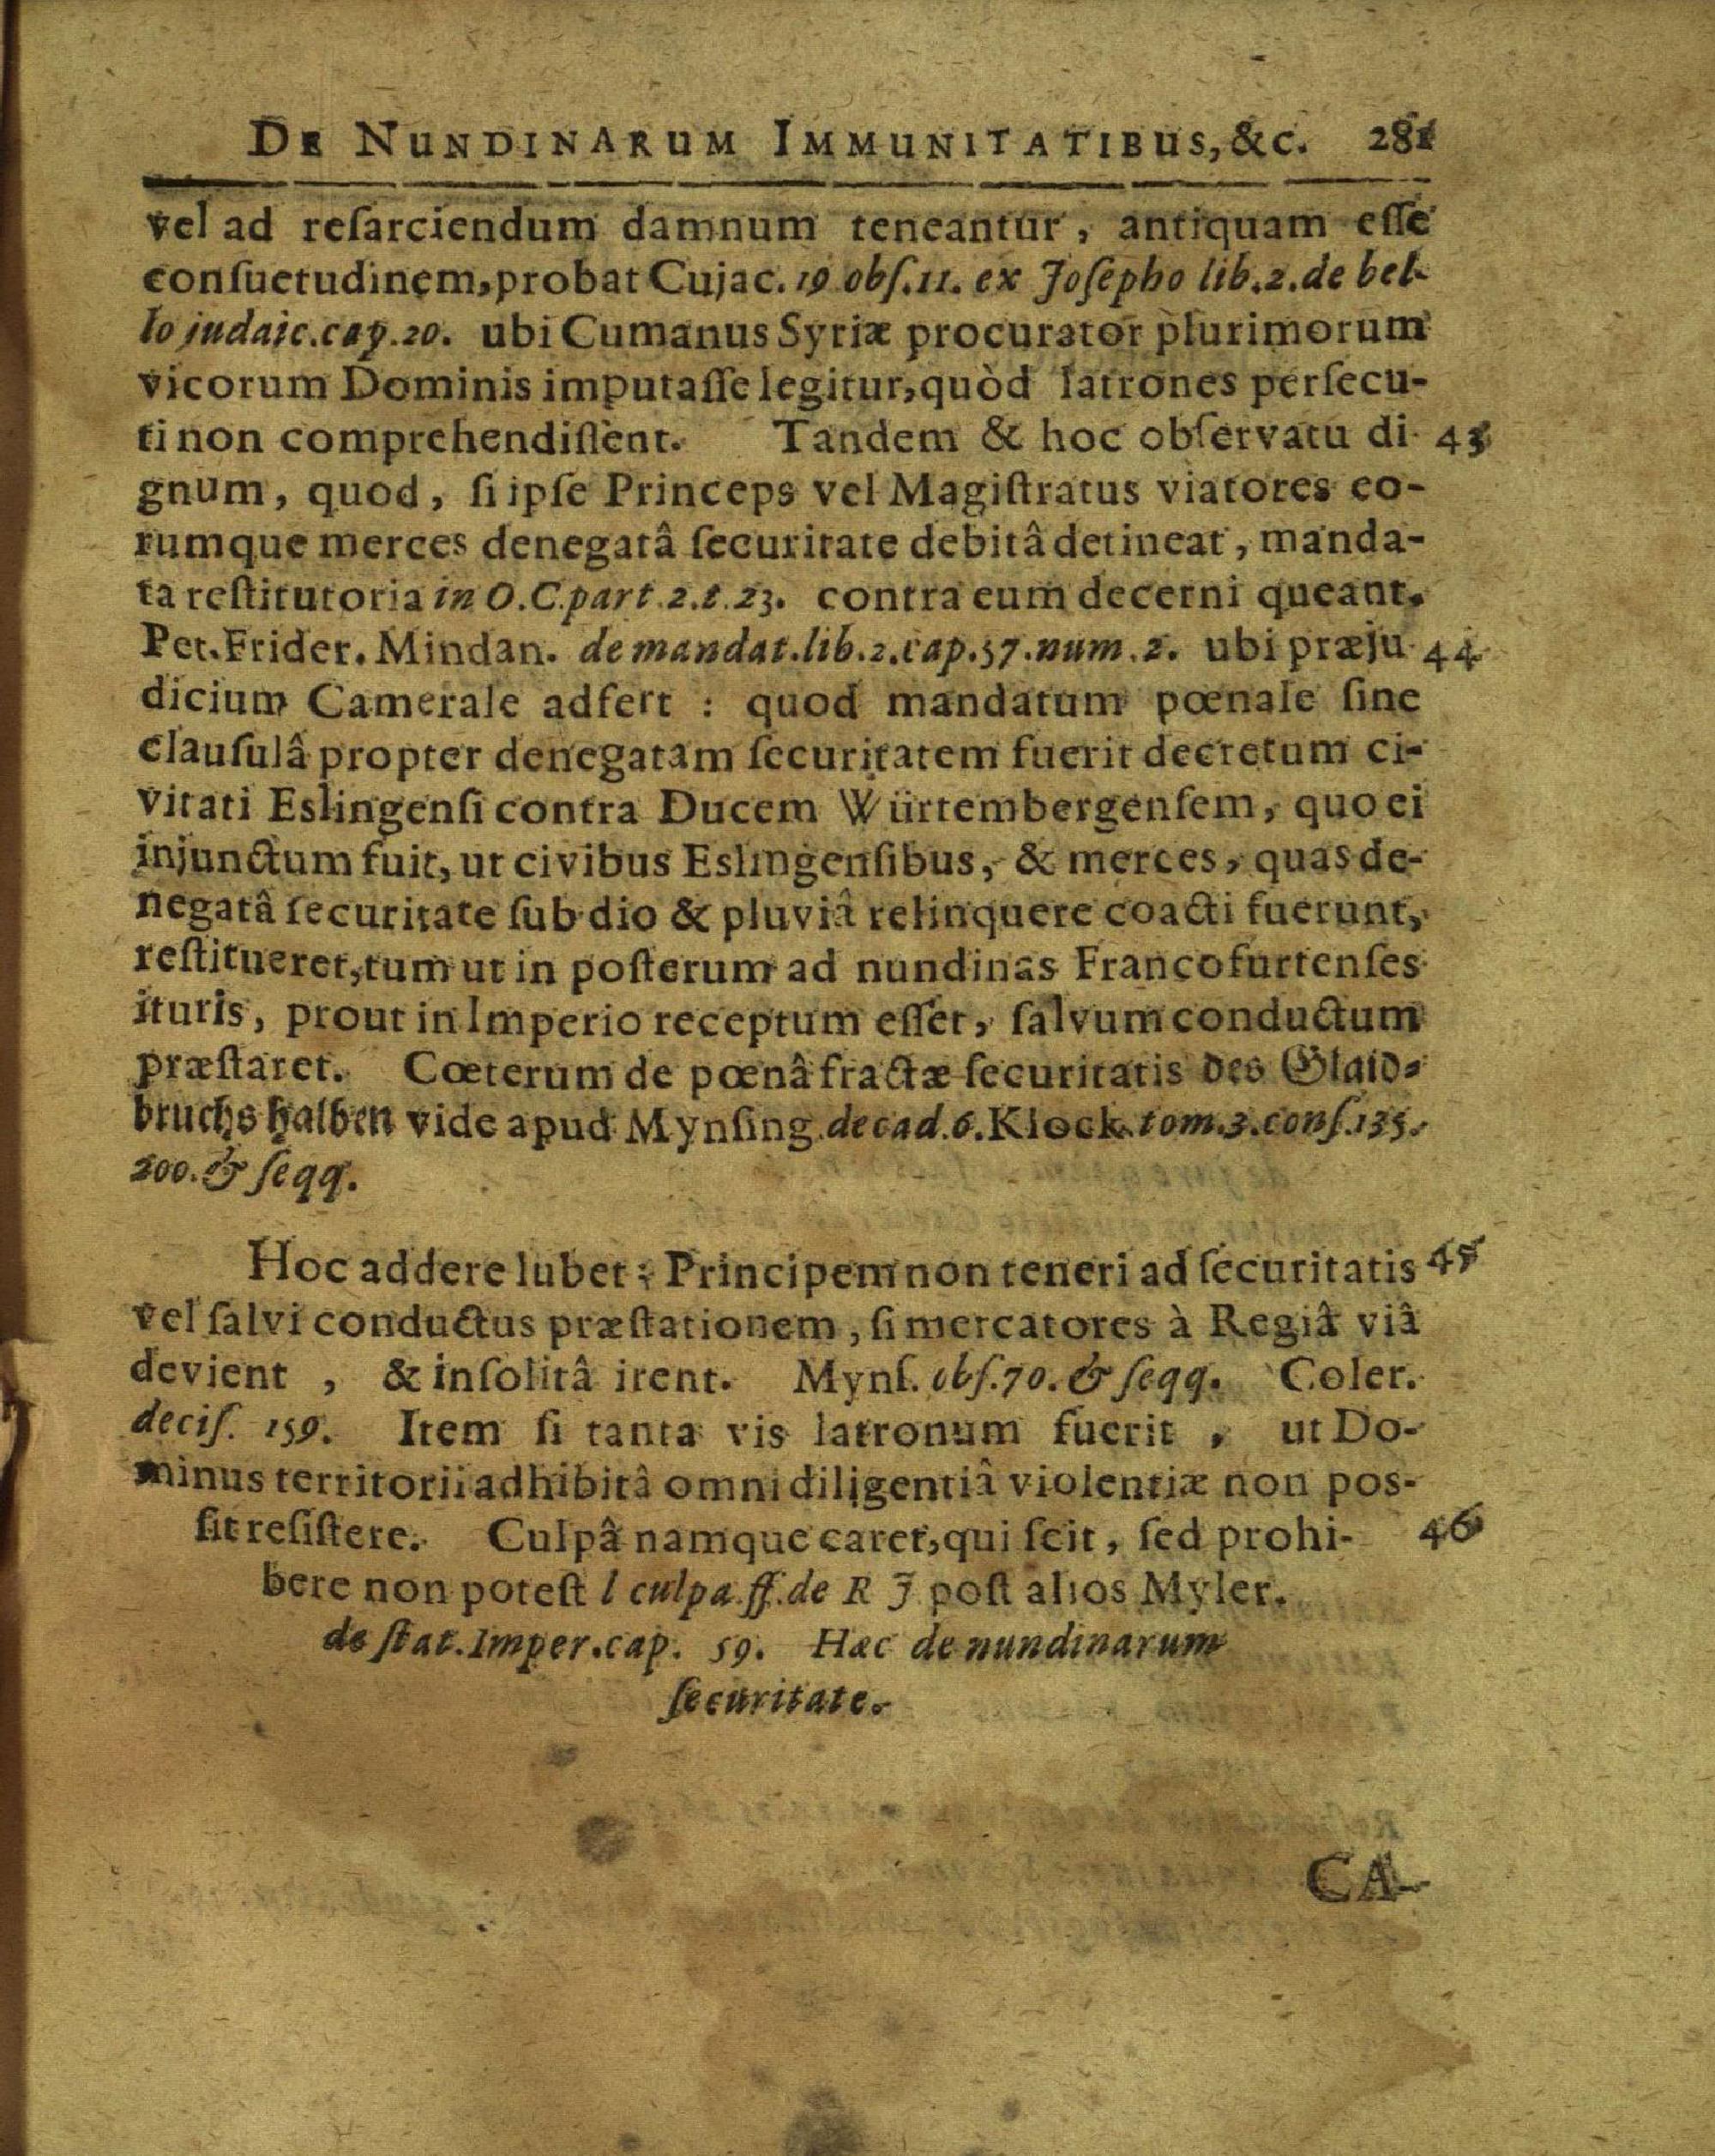 De Nundinarum Immunitatibus, &c. 281
vel ad reſarciendum damnum teneantur, antiquam eſſe
conſuetudinem, probat Cujac. 19 obſ. 11. ex Joſepho lib. 2. de bel-
lo judaic. cap. 20. ubi Cumanus Syriæ procurator plurimorum
vicorum Dominis imputaſſe legitur, quòd latrones perſecu-
ti non comprehendiſſent. Tandem & hoc obſervatu di- 43
gnum, quod, ſi ipſe Princeps vel Magiſtratus viatores eo-
rumque merces denegatâ ſecuritate debitâ detineat, manda-
ta reſtitutoria in O. C. part. 2. t. 23. contra eum decerni queant.
Pet. Frider. Mindan. de mandat. lib. 2. cap. 57. num. 2. ubi præju- 44
dicium Camerale adfert : quod mandatum pœnale ſine
clauſulâ propter denegatam ſecuritatem fuerit decretum ci-
vitati Eslingenſi contra Ducem Würtembergenſem, quo ei
injunctum fuit, ut civibus Eslingenſibus, & merces, quas de-
negatâ ſecuritate ſub dio & pluviâ relinquere coacti fuerunt,
reſtitueret, tum ut in poſterum ad nundinas Francofurtenſes
ituris, prout in Imperio receptum eſſet, ſalvum conductum
præſtaret. Cœterum de pœnâ fractæ ſecuritatis des Glaid-
bruchs halben vide apud Mynſing. decad. 6. Klock. tom. 3. conſ. 135.
200. & ſeqq.
Hoc addere lubet : Principem non teneri ad ſecuritatis 45
vel ſalvi conductus præſtationem, ſi mercatores à Regiâ viâ
devient, & inſolitâ irent. Mynſ. obſ. 70. & ſeqq. Coler.
deciſ. 159. Item ſi tanta vis latronum fuerit, ut Do-
minus territorii adhibitâ omni diligentiâ violentiæ non pos-
ſit reſiſtere. Culpâ namque caret, qui ſcit, ſed prohi- 46
bere non poteſt l culpa. ff. de R J. poſt alios Myler.
de ſtat. Imper. cap. 59. Hæc de nundinarum
ſecuritate.
CA-